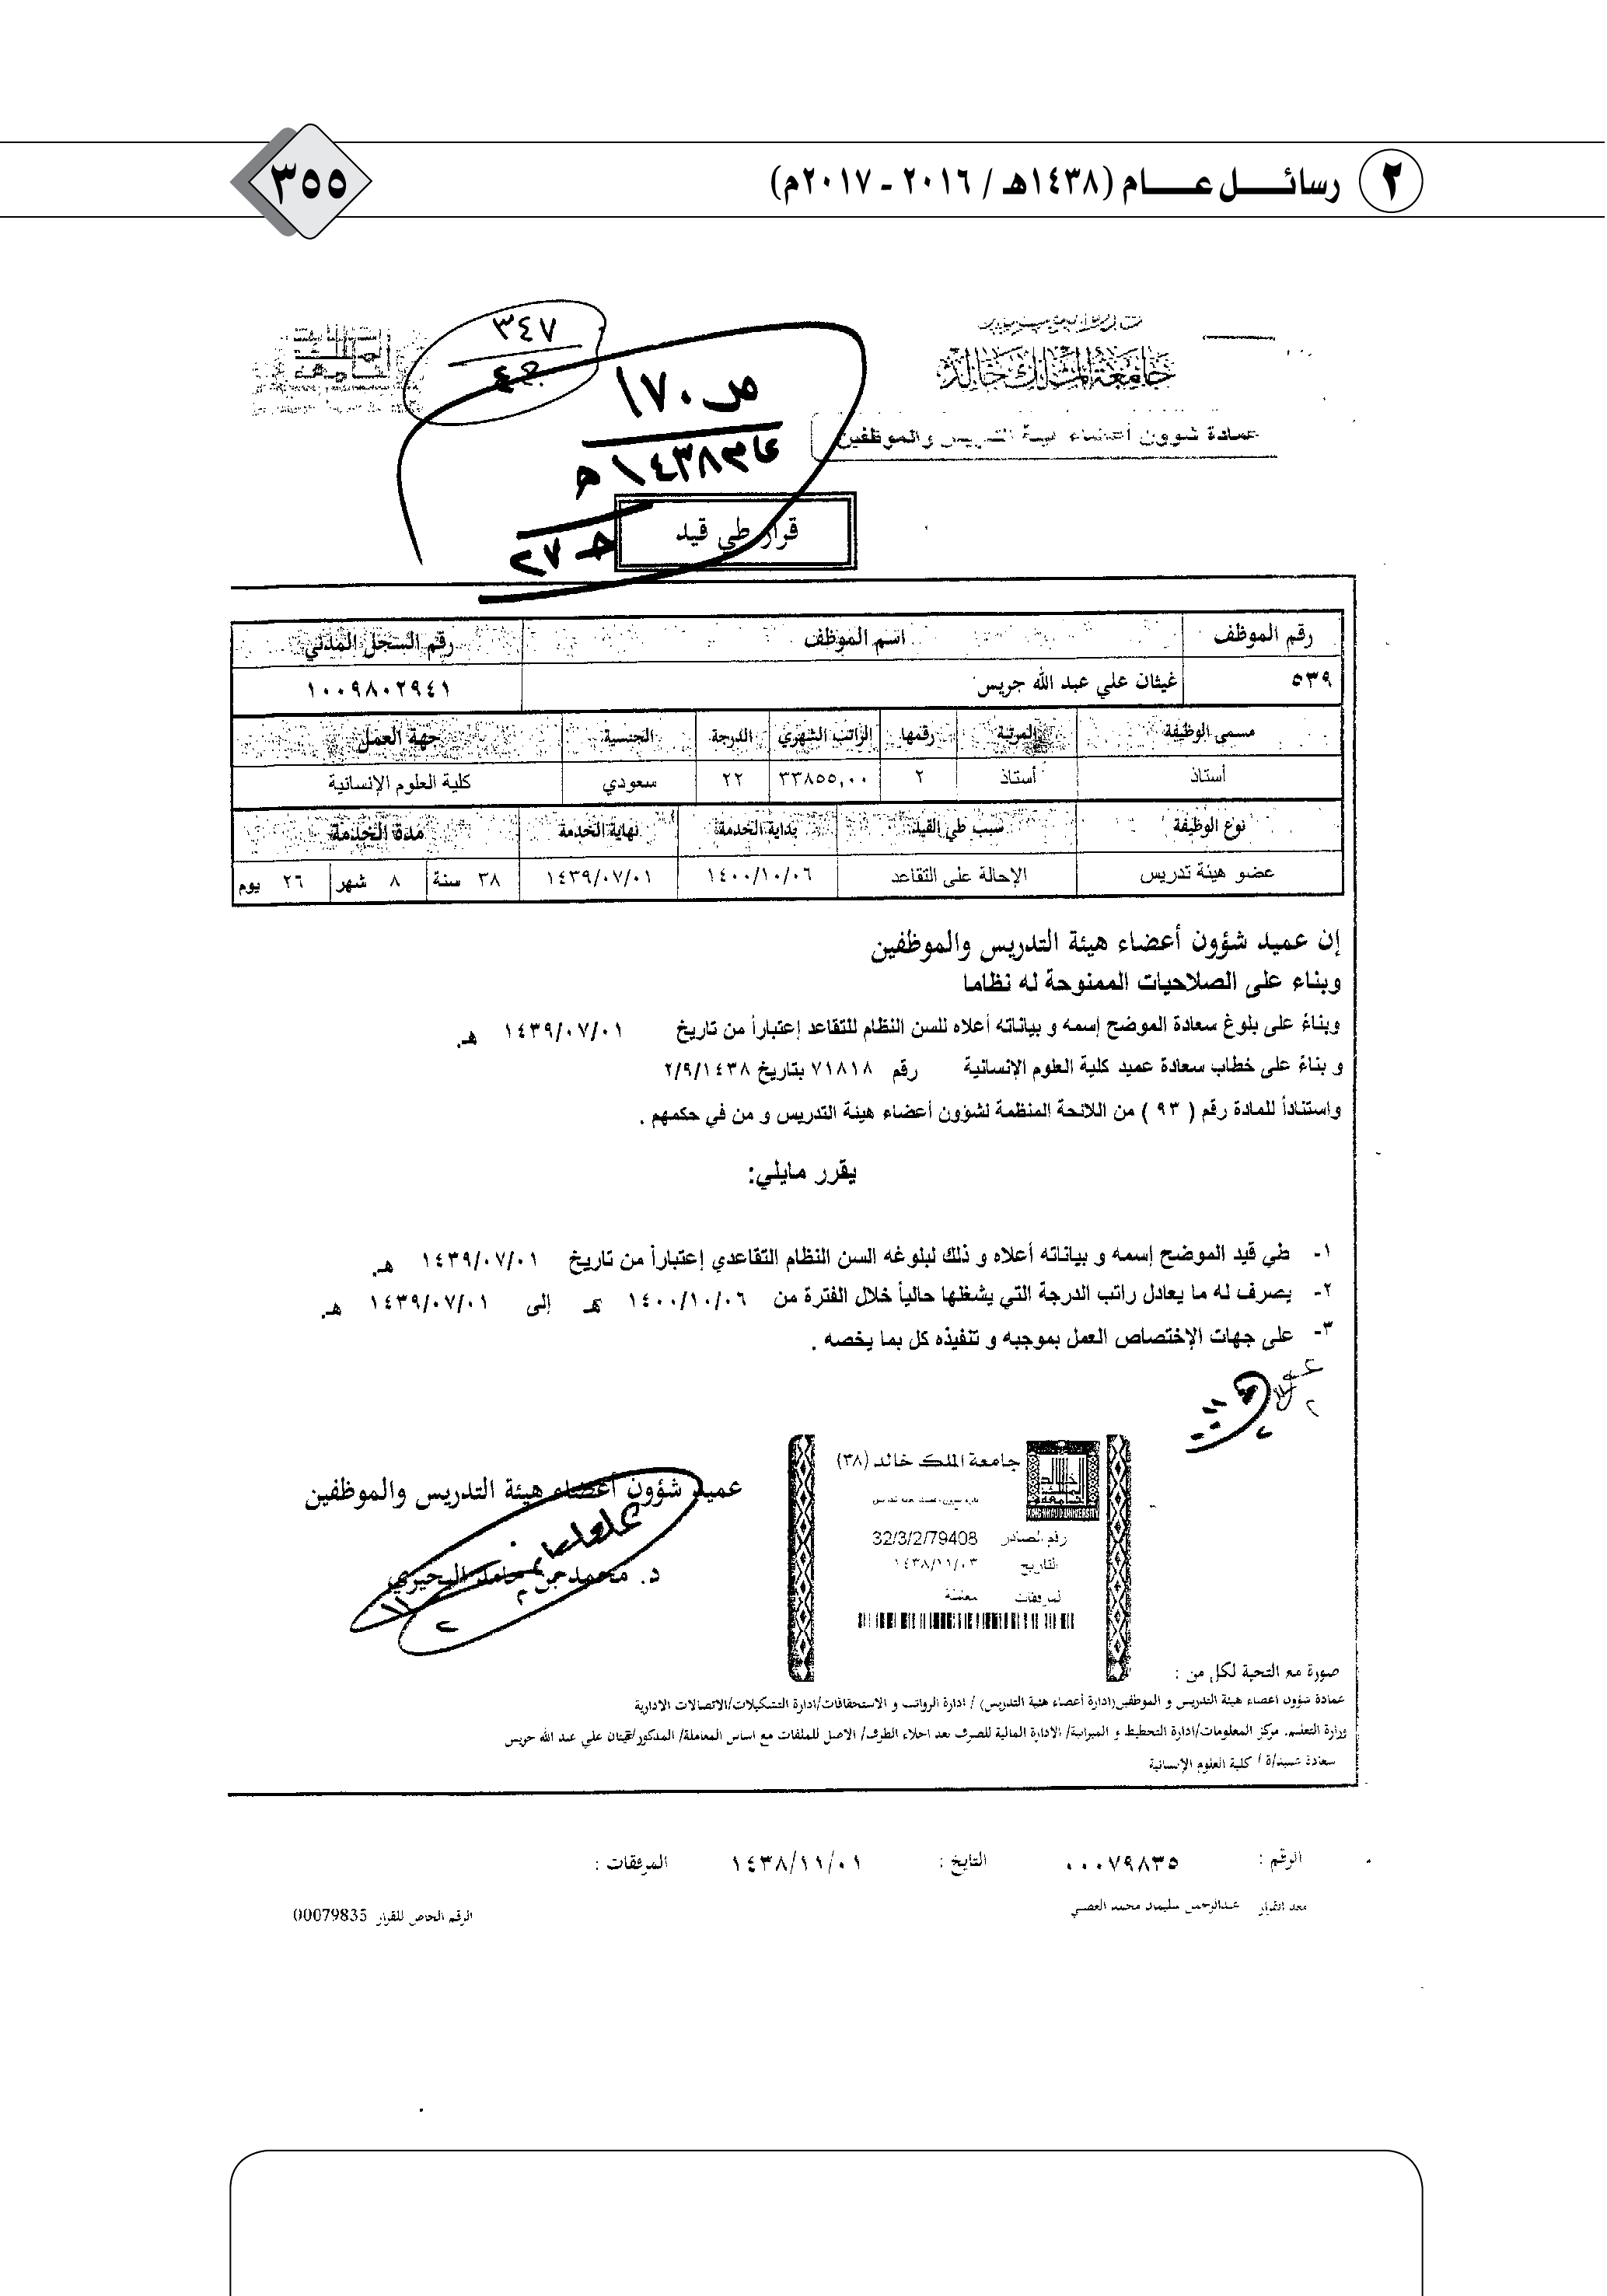 ٢ رسائل عام (١٤٣٨هـ / ٢٠١٦ - ٢٠١٧م)
٣٥٥
٣٤٧
ص ١٧٠
عام ١٤٣٨هـ
جـ ٢٧
جامعة الملك خالد
عمادة شؤون أعضاء هيئة التدريس والموظفين
قرار طي قيد
رقم الموظف اسم الموظف رقم السجل المدني
٥٣٩ غيثان علي عبد الله جريس ١٠٠٩٨٠٢٩٤١
مسمى الوظيفة المرتبة رقمها الراتب الشهري الدرجة الجنسية جهة العمل
أستاذ أستاذ ٢ ٣٣٨٥٥,٠٠ ٢٢ سعودي كلية العلوم الإنسانية
نوع الوظيفة سبب طي القيد بداية الخدمة نهاية الخدمة مدة الخدمة
عضو هيئة تدريس الإحالة على التقاعد ١٤٠٠/١٠/٠٦ ١٤٣٩/٠٧/٠١ ٣٨ سنة ٨ شهر ٢٦ يوم
إن عميد شؤون أعضاء هيئة التدريس والموظفين
وبناء على الصلاحيات الممنوحة له نظاما
وبناءً على بلوغ سعادة الموضح إسمه و بياناته أعلاه للسن النظام للتقاعد إعتباراً من تاريخ ١٤٣٩/٠٧/٠١ هـ.
و بناءً على خطاب سعادة عميد كلية العلوم الإنسانية رقم ٧١٨١٨ بتاريخ ٢/٩/١٤٣٨
واستناداً للمادة رقم ( ٩٣ ) من اللائحة المنظمة لشؤون أعضاء هيئة التدريس و من في حكمهم .
يقرر مايلي:
١- طي قيد الموضح إسمه و بياناته أعلاه و ذلك لبلوغه السن النظام التقاعدي إعتباراً من تاريخ ١٤٣٩/٠٧/٠١ هـ.
٢- يصرف له ما يعادل راتب الدرجة التي يشغلها حالياً خلال الفترة من ١٤٠٠/١٠/٠٦ هـ إلى ١٤٣٩/٠٧/٠١ هـ.
٣- على جهات الإختصاص العمل بموجبه و تنفيذه كل بما يخصه .
جامعة الملك خالد (٣٨)
رقم الصادر 32/3/2/79408
التاريخ ١٤٣٨/١١/٠٣
المرفقات
عميد شؤون أعضاء هيئة التدريس والموظفين
د. محمد بن حامد البحيري
صورة مع التحية لكل من :
عمادة شؤون اعضاء هيئة التدريس و الموظفين(ادارة أعضاء هئية التدريس) / ادارة الرواتب و الاستحقاقات/ادارة التشكيلات/الاتصالات الادارية
وزارة التعليم. مركز المعلومات/ادارة التخطيط و الميزانية/ الادارة المالية للصرف بعد اخلاء الطرف/ الاصل للملفات مع اساس المعاملة/ المذكور/غيثان علي عبد الله جريس
سعادة عميد/ة / كلية العلوم الإنسانية
الرقم : ٠٠٠٧٩٨٣٥ التايخ : ١٤٣٨/١١/٠١ المرفقات :
معد القرار عبدالرحمن سليمان محمد
الرقم الخاص للقرار 00079835